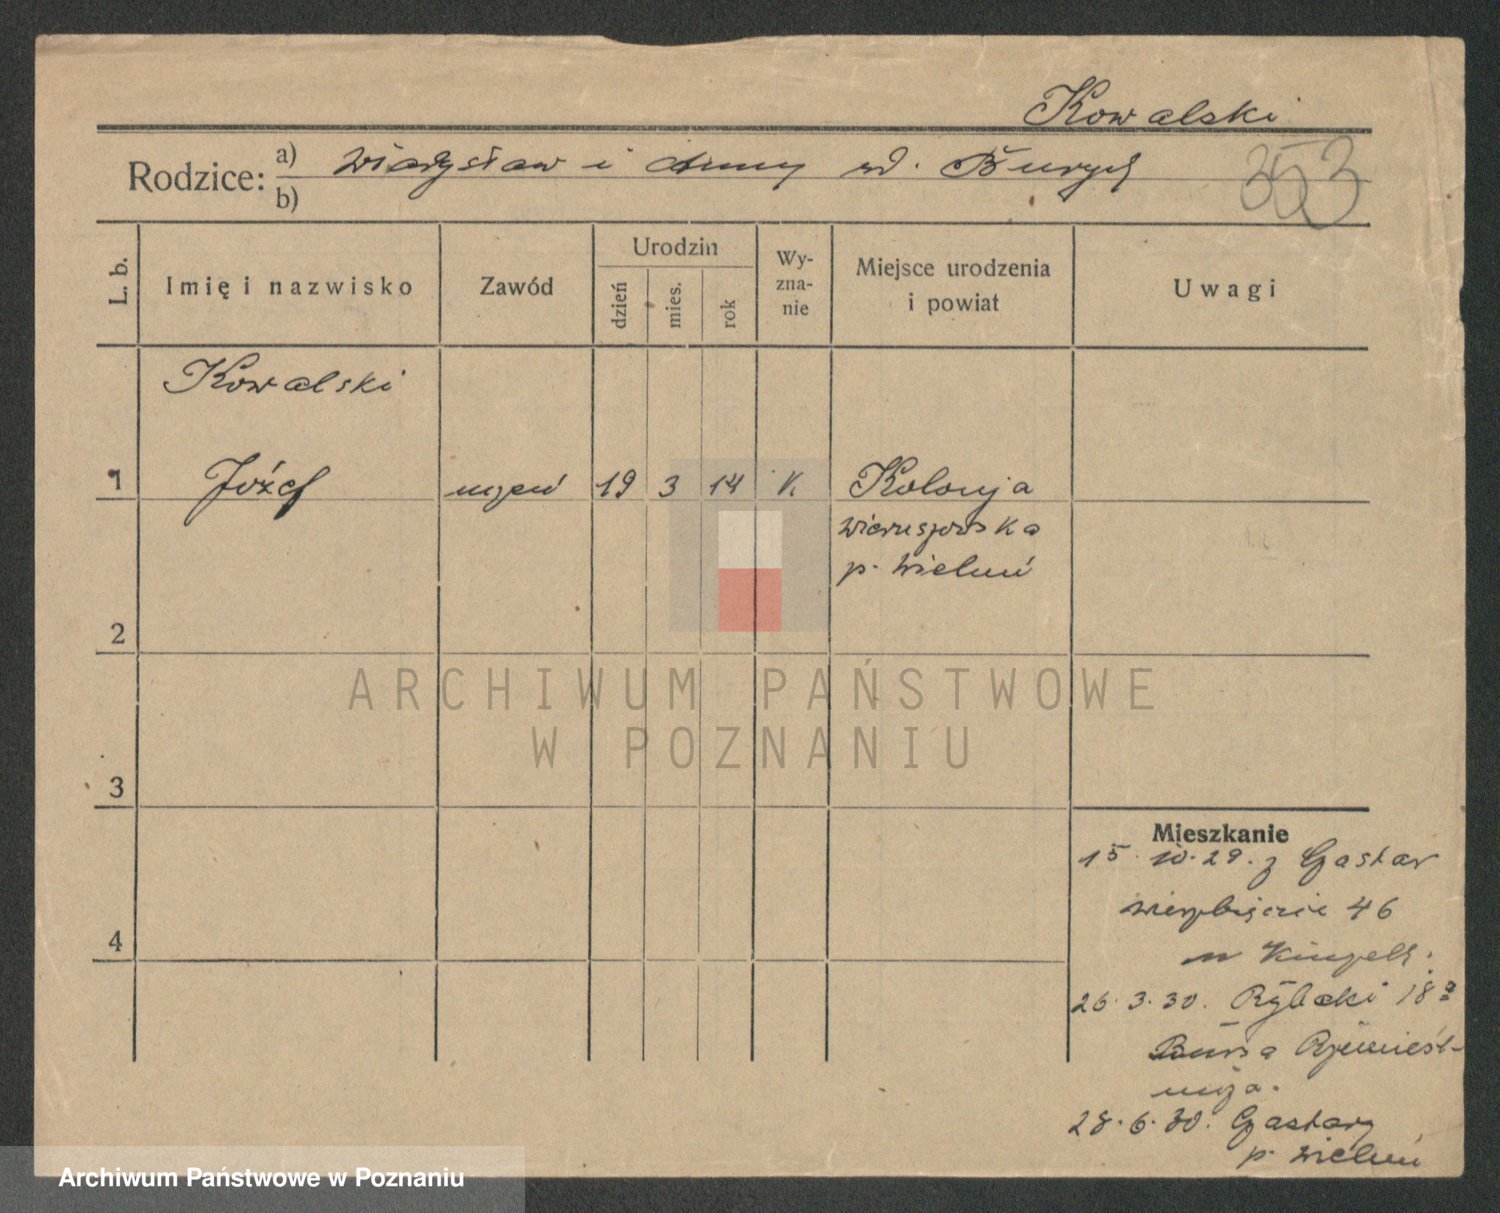 Kowalski
Rodzice: a) Władysław i Anny ur. Burych
b)
353
L. b.
Imię i nazwisko
Zawód
Urodzin
dzień
mies.
rok
Wy-
zna-
nie
Miejsce urodzenia
i powiat
Uwagi
Kowalski
1 Józef uczeń 19 3 14 k. Kolonja
wieruszowska
p. Wieluń
2
3
4
Mieszkanie
15.10.29. z
46
26.3.30. Rybaki 18a
Bursa Rzemieśl-
nicza.
28.6.30.
p. Wieluń
ARCHIWUM PAŃSTWOWE
W POZNANIU
Archiwum Państwowe w Poznaniu